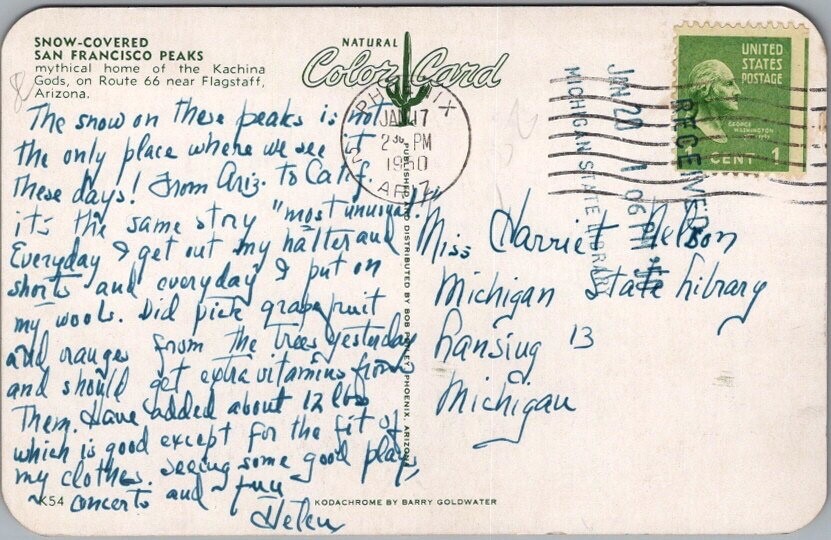 SNOW-COVERED
SAN FRANCISCO PEAKS
mythical home of the Kachina
Gods, on Route 66 near Flagstaff,
Arizona.
NATURAL
Color Card
The snow on these peaks is not
the only place where we see it
these days! From Ariz. to Calif.
it's the same story "most unusual"
Everyday I get out my halter and
shorts and everyday I put on
my wools. Did pick grapefruit
and oranges from the trees yesterday
and should get extra vitamins from
them. Have added about 12 lbs
which is good except for the fit of
my clothes. Seeing some good plays,
concerts and fun
Helen
K54
KODACHROME BY BARRY GOLDWATER
PUBLISHED AND DISTRIBUTED BY BOB PETLEY, PHOENIX, ARIZONA
PHOENIX
JAN 17
2 30 PM
1950
ARIZ
RECEIVED
JAN 20 1 06 PM
MICHIGAN STATE LIBRARY
UNITED
STATES
POSTAGE
GEORGE
WASHINGTON
CENT 1
Miss Harriet Nelson
Michigan State Library
Lansing 13
Michigan